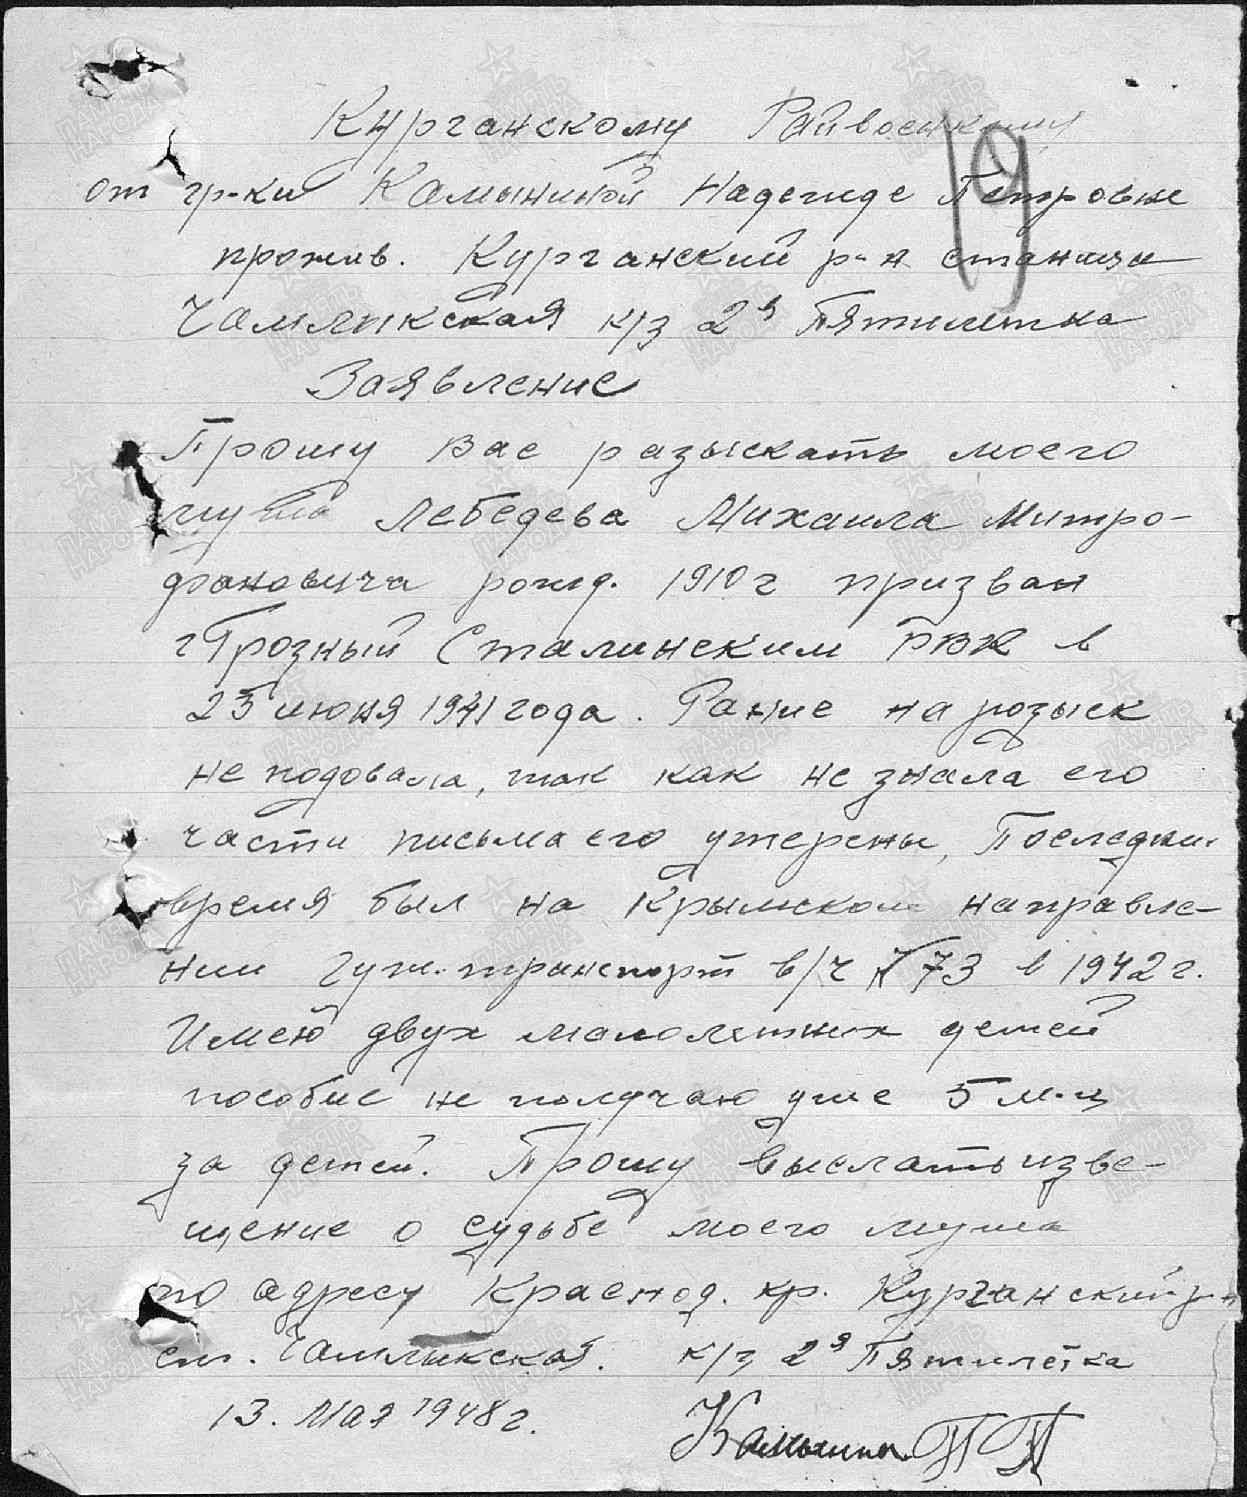 Курганскому Райвоенкому
19
от гр-ки Камыниной Надежде Петровне
прожив. Курганский р-н станица
Чамлыкская к/з 2я Пятилетка
Заявление
Прошу Вас разыскать моего
мужа Лебедева Михаила Митро-
фановича рожд. 1910 г призван
г Грозный Сталинским РВК в
23 июня 1941 года. Ранше на розыск
не подовала, так как не знала его
части письма его утерены, Последни.
время был на Крымском направле-
нии Гуж. транспорт в/ч 73 в 1942 г.
Имею двух малолетних детей
пособие не получаю уже 5 м-ц
за детей. Прошу выслать изве-
щение о судьбе моего мужа
по адресу Краснод. кр. Курганский р-н
ст. Чамлыкская. к/з 2я Пятилетка
13. Мая 1948 г.
Камынина
ПАМЯТЬ НАРОДА